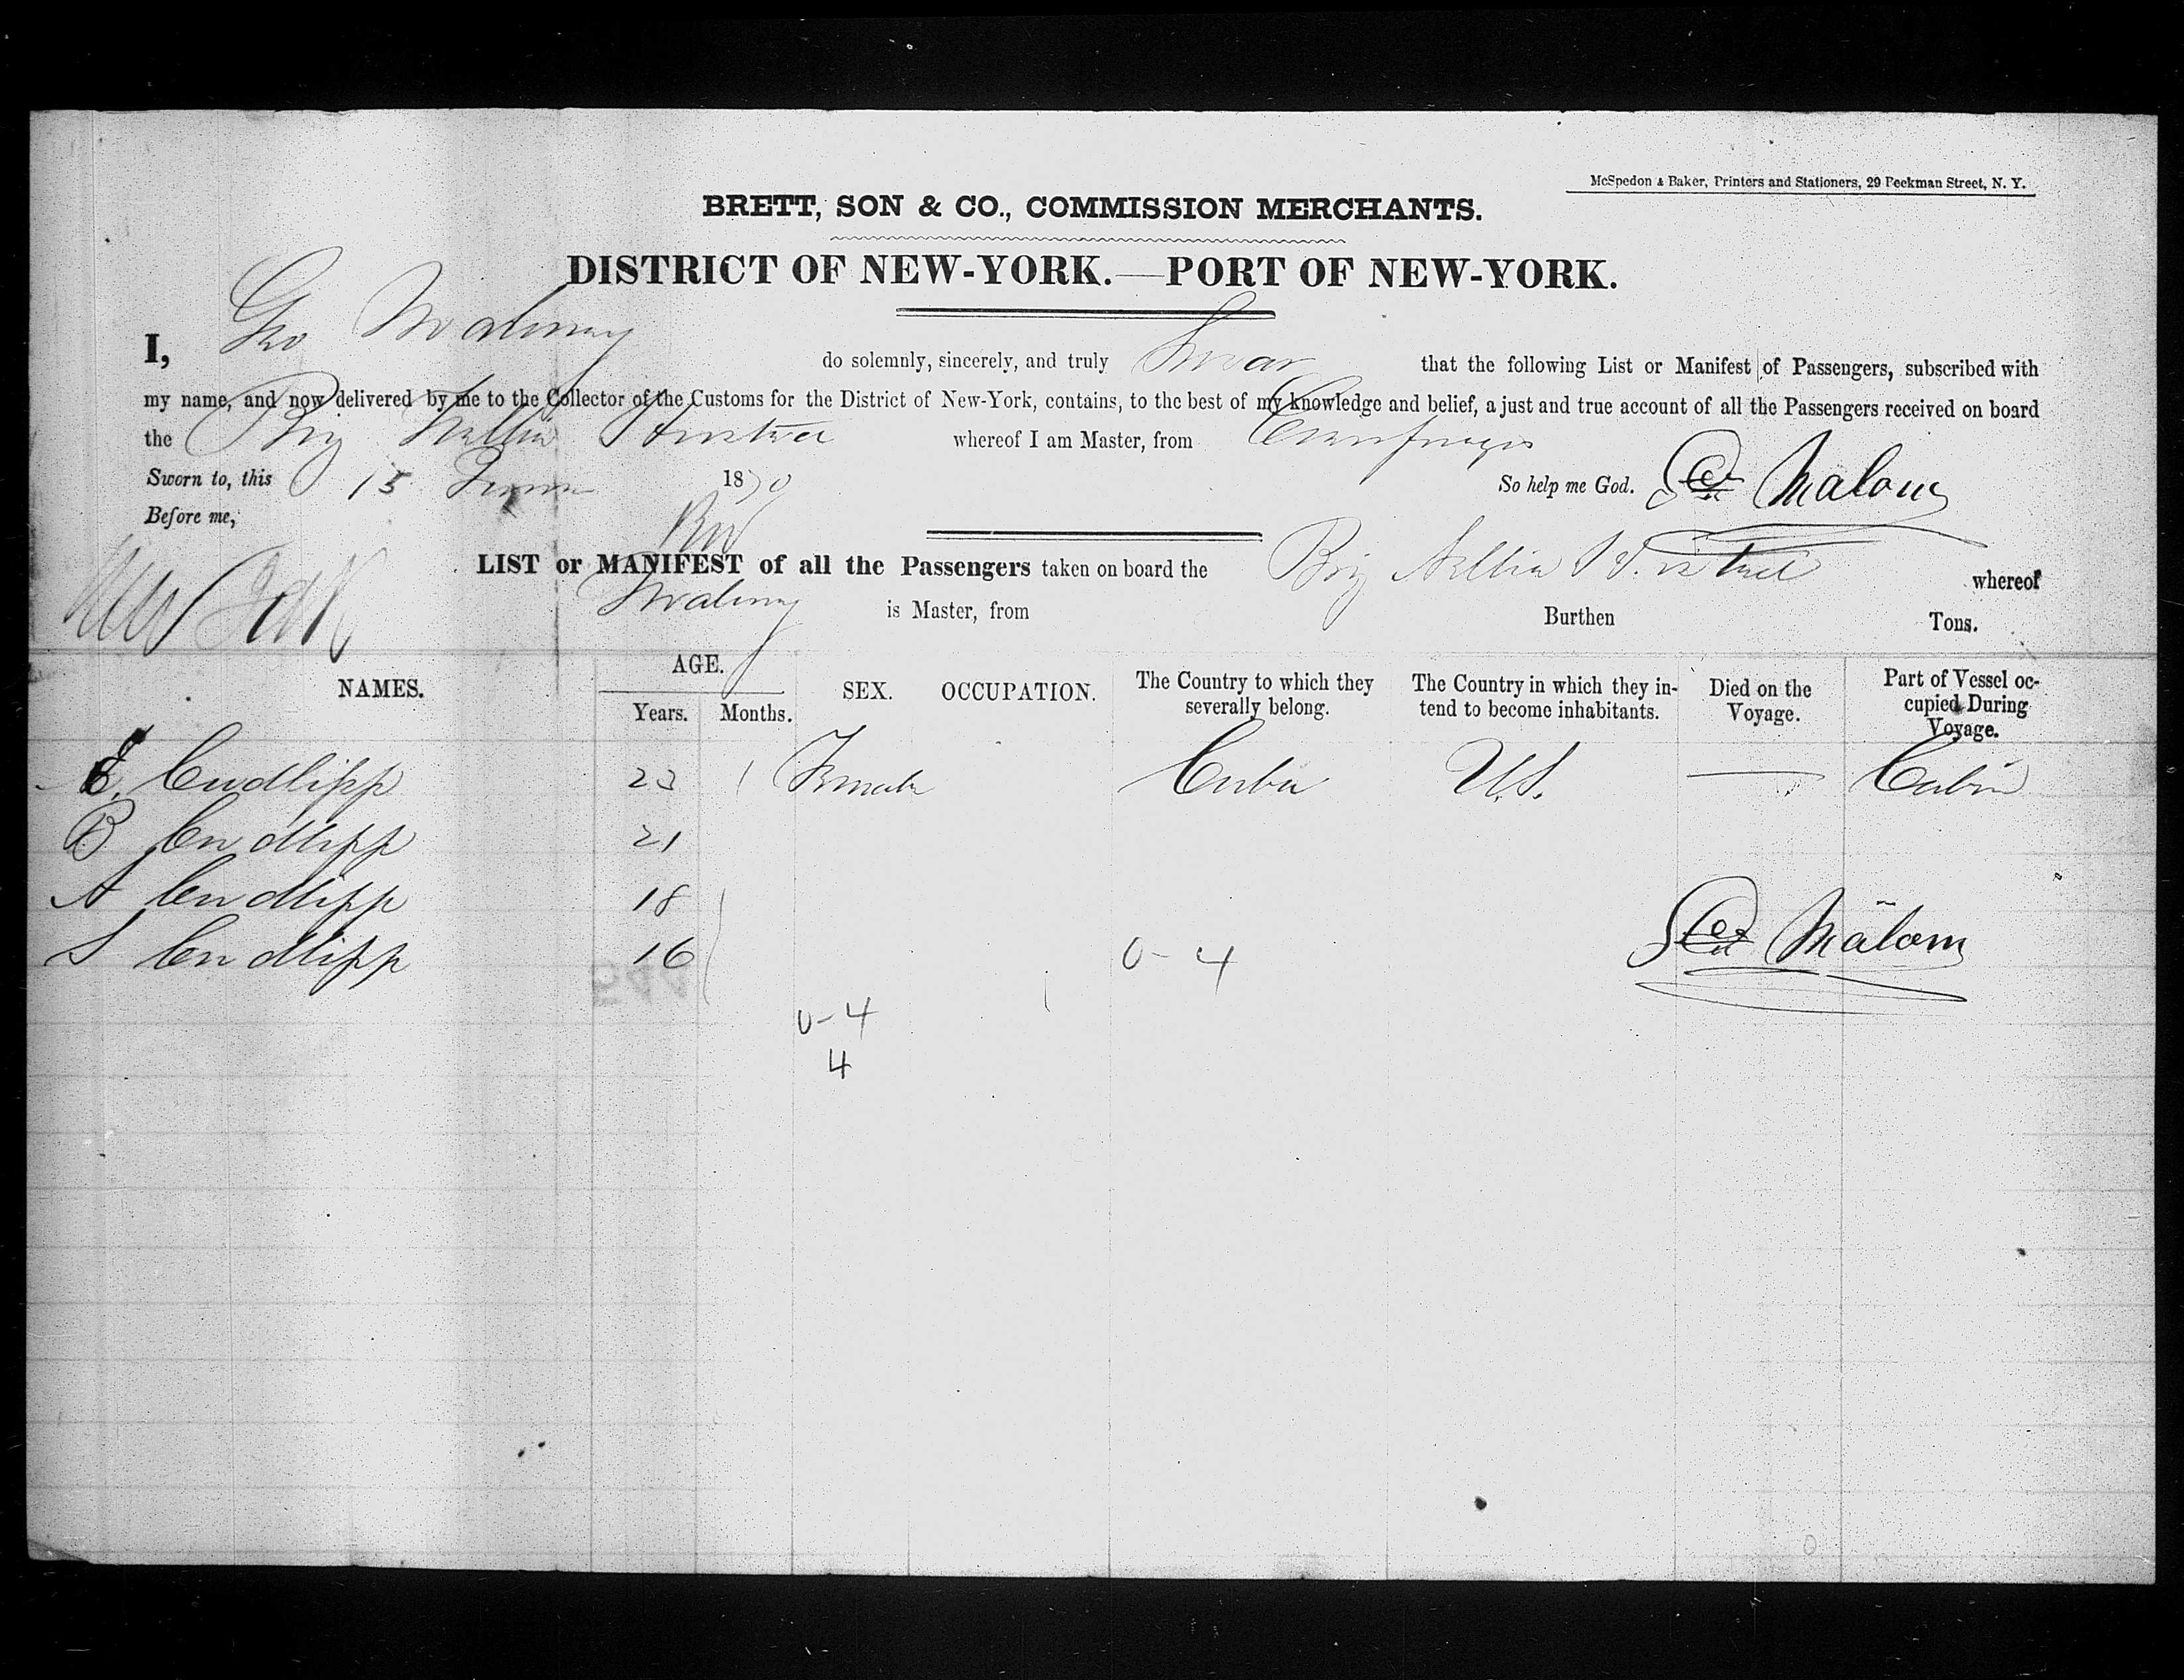 McSpedon & Baker, Printers and Stationers, 29 Beekman Street, N. Y.
BRETT, SON & CO., COMMISSION MERCHANTS.
DISTRICT OF NEW-YORK.—PORT OF NEW-YORK.
I, Geo do solemnly, sincerely, and truly Swear that the following List or Manifest of Passengers, subscribed with
my name, and now delivered by me to the Collector of the Customs for the District of New-York, contains, to the best of my knowledge and belief, a just and true account of all the Passengers received on board
the Brig Nellie whereof I am Master, from Cienfuegos
Sworn to, this 15 1870 So help me God. Malony
Before me,
LIST or MANIFEST of all the Passengers taken on board the Brig Nellie whereof
is Master, from Burthen Tons.
NAMES. AGE. Years. Months. SEX. OCCUPATION. The Country to which they severally belong. The Country in which they intend to become inhabitants. Died on the Voyage. Part of Vessel occupied During Voyage.
E. Cudlipp 23 Female Cuba U.S. — Cabin
B Cudlipp 21
A Cudlipp 18
S Cudlipp 16
0-4
0-4
4